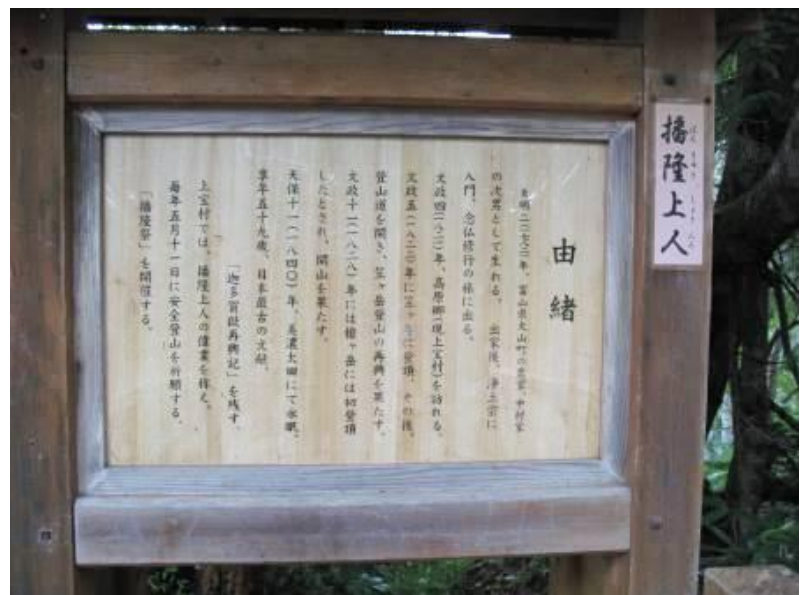 播隆上人
ばん りゅう しょう にん
由緒
天明二(一七八二)年、富山県大山町の農家、中村家
の次男として生れる。 出家後、浄土宗に
入門、念仏修行の旅に出る。
文政四(一八二一)年、高原郷(現上宝村)を訪れる。
文政五(一八二二)年に笠ヶ岳に登頂、その後、
登山道を開き、笠ヶ岳登山の再興を果たす。
文政十一(一八二八)年には槍ヶ岳には初登頂
したとされ、開山を果たす。
天保十一(一八四〇)年、美濃太田にて永眠。
享年五十九歳、日本最古の文献、
「迦多賀嶽再興記」を残す。
上宝村では、播隆上人の偉業を称え、
毎年五月十一日に安全登山を祈願する、
「播隆祭」を開催する。